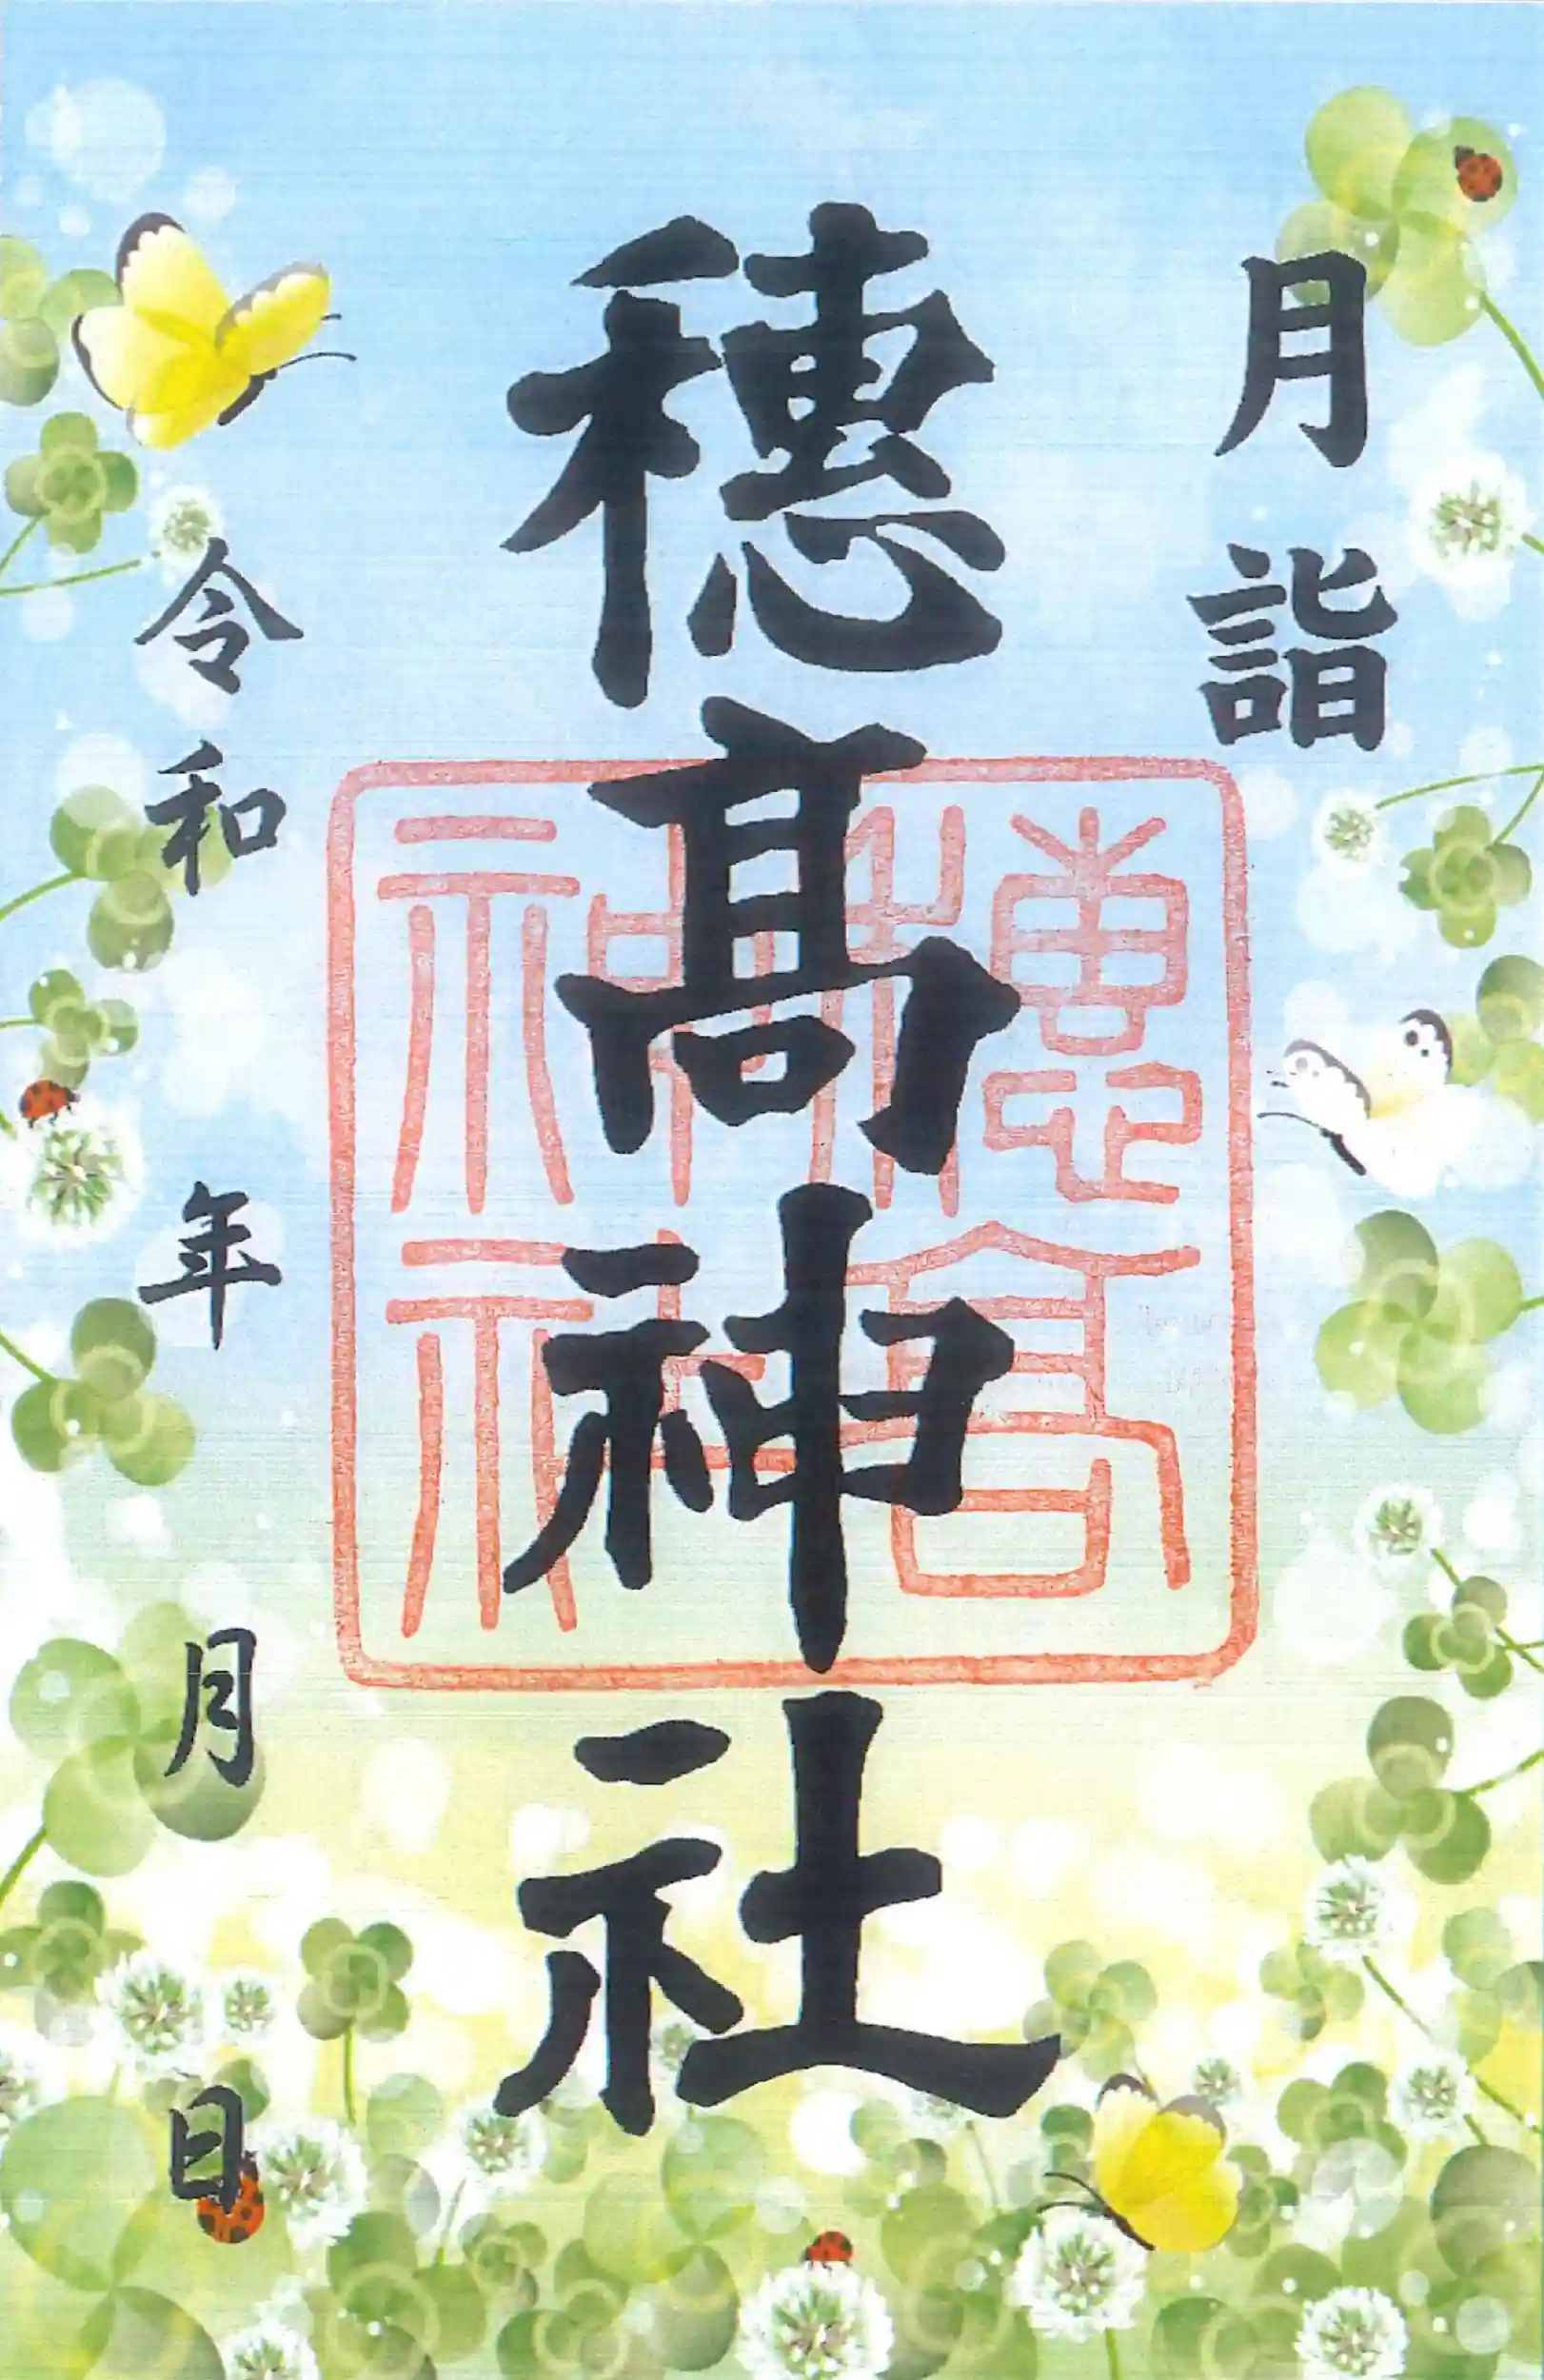 月詣
穂髙神社
穂高
神社
令和 年 月 日